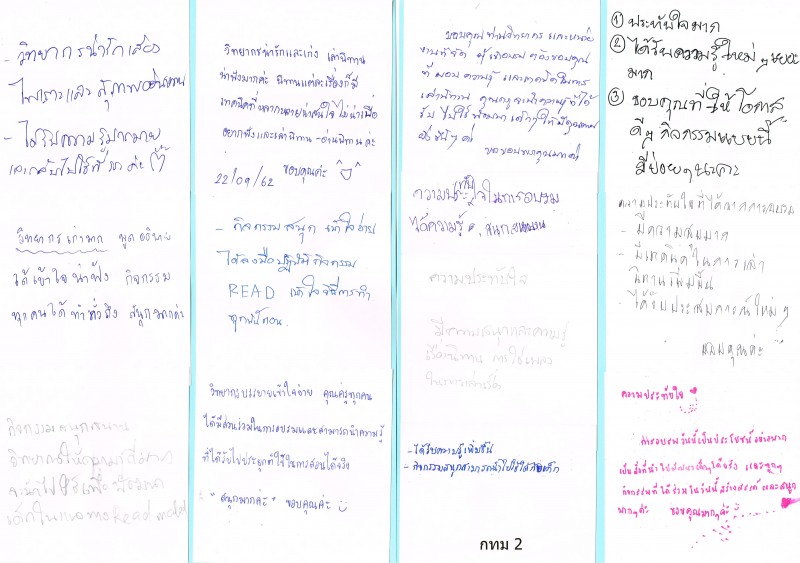 - วิทยากรน่ารักเสียง
ไพเราะและสุภาพอ่อนหวาน
- ได้รับความรู้มากมาย
และกลับไปใช้ที่ รร ค่ะ
วิทยากรเก่งมาก พูดอธิบาย
ได้เข้าใจน่าฟัง กิจกรรม
ทุกคนได้ทำทั่วถึง สนุกมากค่ะ
กิจกรรมสนุกสนาน
วิทยากรให้ความรู้
เด็กในแนวทาง Read
วิทยากรน่ารักและเก่ง เล่านิทาน
น่าฟังมากค่ะ นิทานแต่ละเรื่องก็มี
เทคนิคที่หลากหลายน่าสนใจ ไม่น่าเบื่อ
อยากฟังและเล่านิทาน-อ่านนิทานค่ะ
22/09/62 ขอบคุณค่ะ
- กิจกรรมสนุก เข้าใจง่าย
ได้ลงมือปฏิบัติกิจกรรม
READ เข้าใจวิธีการทำ
ทุกขั้นตอน.
วิทยากรบรรยายเข้าใจง่าย คุณครูทุกคน
ได้มีส่วนร่วมในการอบรมและสามารถนำความรู้
ที่ได้รับไปประยุกต์ใช้ในการสอนได้จริง
"สนุกมากค่ะ" ขอบคุณค่ะ
ขอบคุณท่านวิทยากร และหน่วย
งานที่จัด
ที่มอบความรู้ และเทคนิคในการ
เล่านิทาน คุณครูจะนำความรู้ที่ได้
รับไปใช้พัฒนาเด็กๆ
ขอขอบพระคุณมากค่ะ
ความประทับใจในการอบรม
ได้ความรู้, สนุกสนาน
ความประทับใจ
มีความสนุกและความรู้
เรื่องนิทาน การใช้เพลง
ในการเล่าเรื่อง
- ได้รับความรู้เพิ่มขึ้น
- กิจกรรมสนุกสามารถนำไปใช้ได้กับเด็ก
กทม 2
① ประทับใจมาก
② ได้รับความรู้ใหม่ๆเยอะ
มาก
③ ขอบคุณที่ให้โอกาส
ดีๆ กิจกรรมแบบนี้
มีบ่อยๆนะคะ
ความประทับใจที่ได้จากการอบรม
- มีความสุขมาก
- มีเทคนิคในการเล่า
นิทานเพิ่มขึ้น
- ได้รับประสบการณ์ใหม่ๆ
ขอบคุณค่ะ
ความประทับใจ
การอบรมวันนี้เป็นประโยชน์อย่างมาก
เป็นสิ่งที่นำไปพัฒนาเด็กๆได้จริง และทุกๆ
กิจกรรมที่ได้ร่วมในวันนี้สร้างสรรค์ และสนุก
มากๆค่ะ ขอบคุณมากๆค่ะ